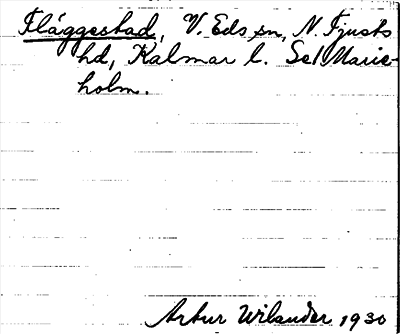 Fläggestad, V. Eds sn, N. Tjusts
hd, Kalmar l. Se! Marie-
holm.
Artur Wilander 1930